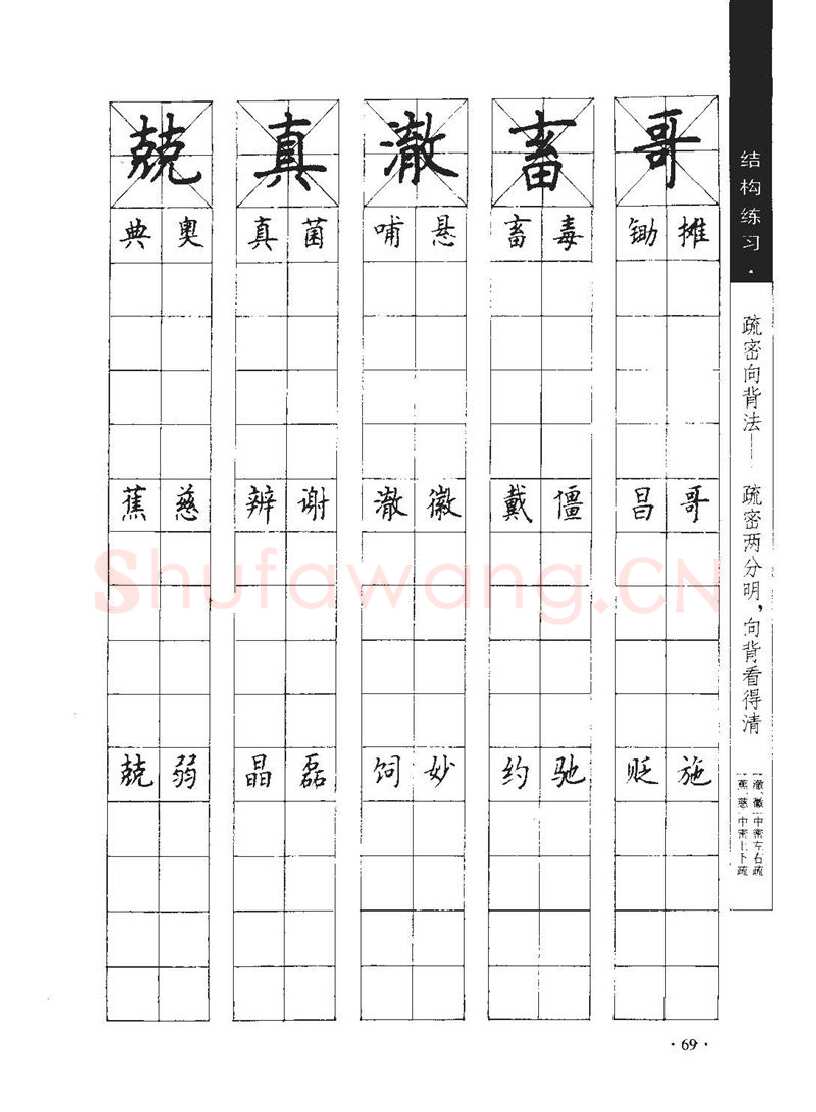 兢 真 澈 畜 哥
典 奥 真 菌 哺 悬 畜 毒 锄 摊
蕉 慈 辨 谢 澈 徽 戴 僵 昌 哥
兢 弱 晶 磊 饲 妙 约 驰 贬 施
结构练习·
疏密向背法——疏密两分明,向背看得清
澈、徽—中密左右疏
蕉、慈—中密上下疏
Shufawang.CN
·69·